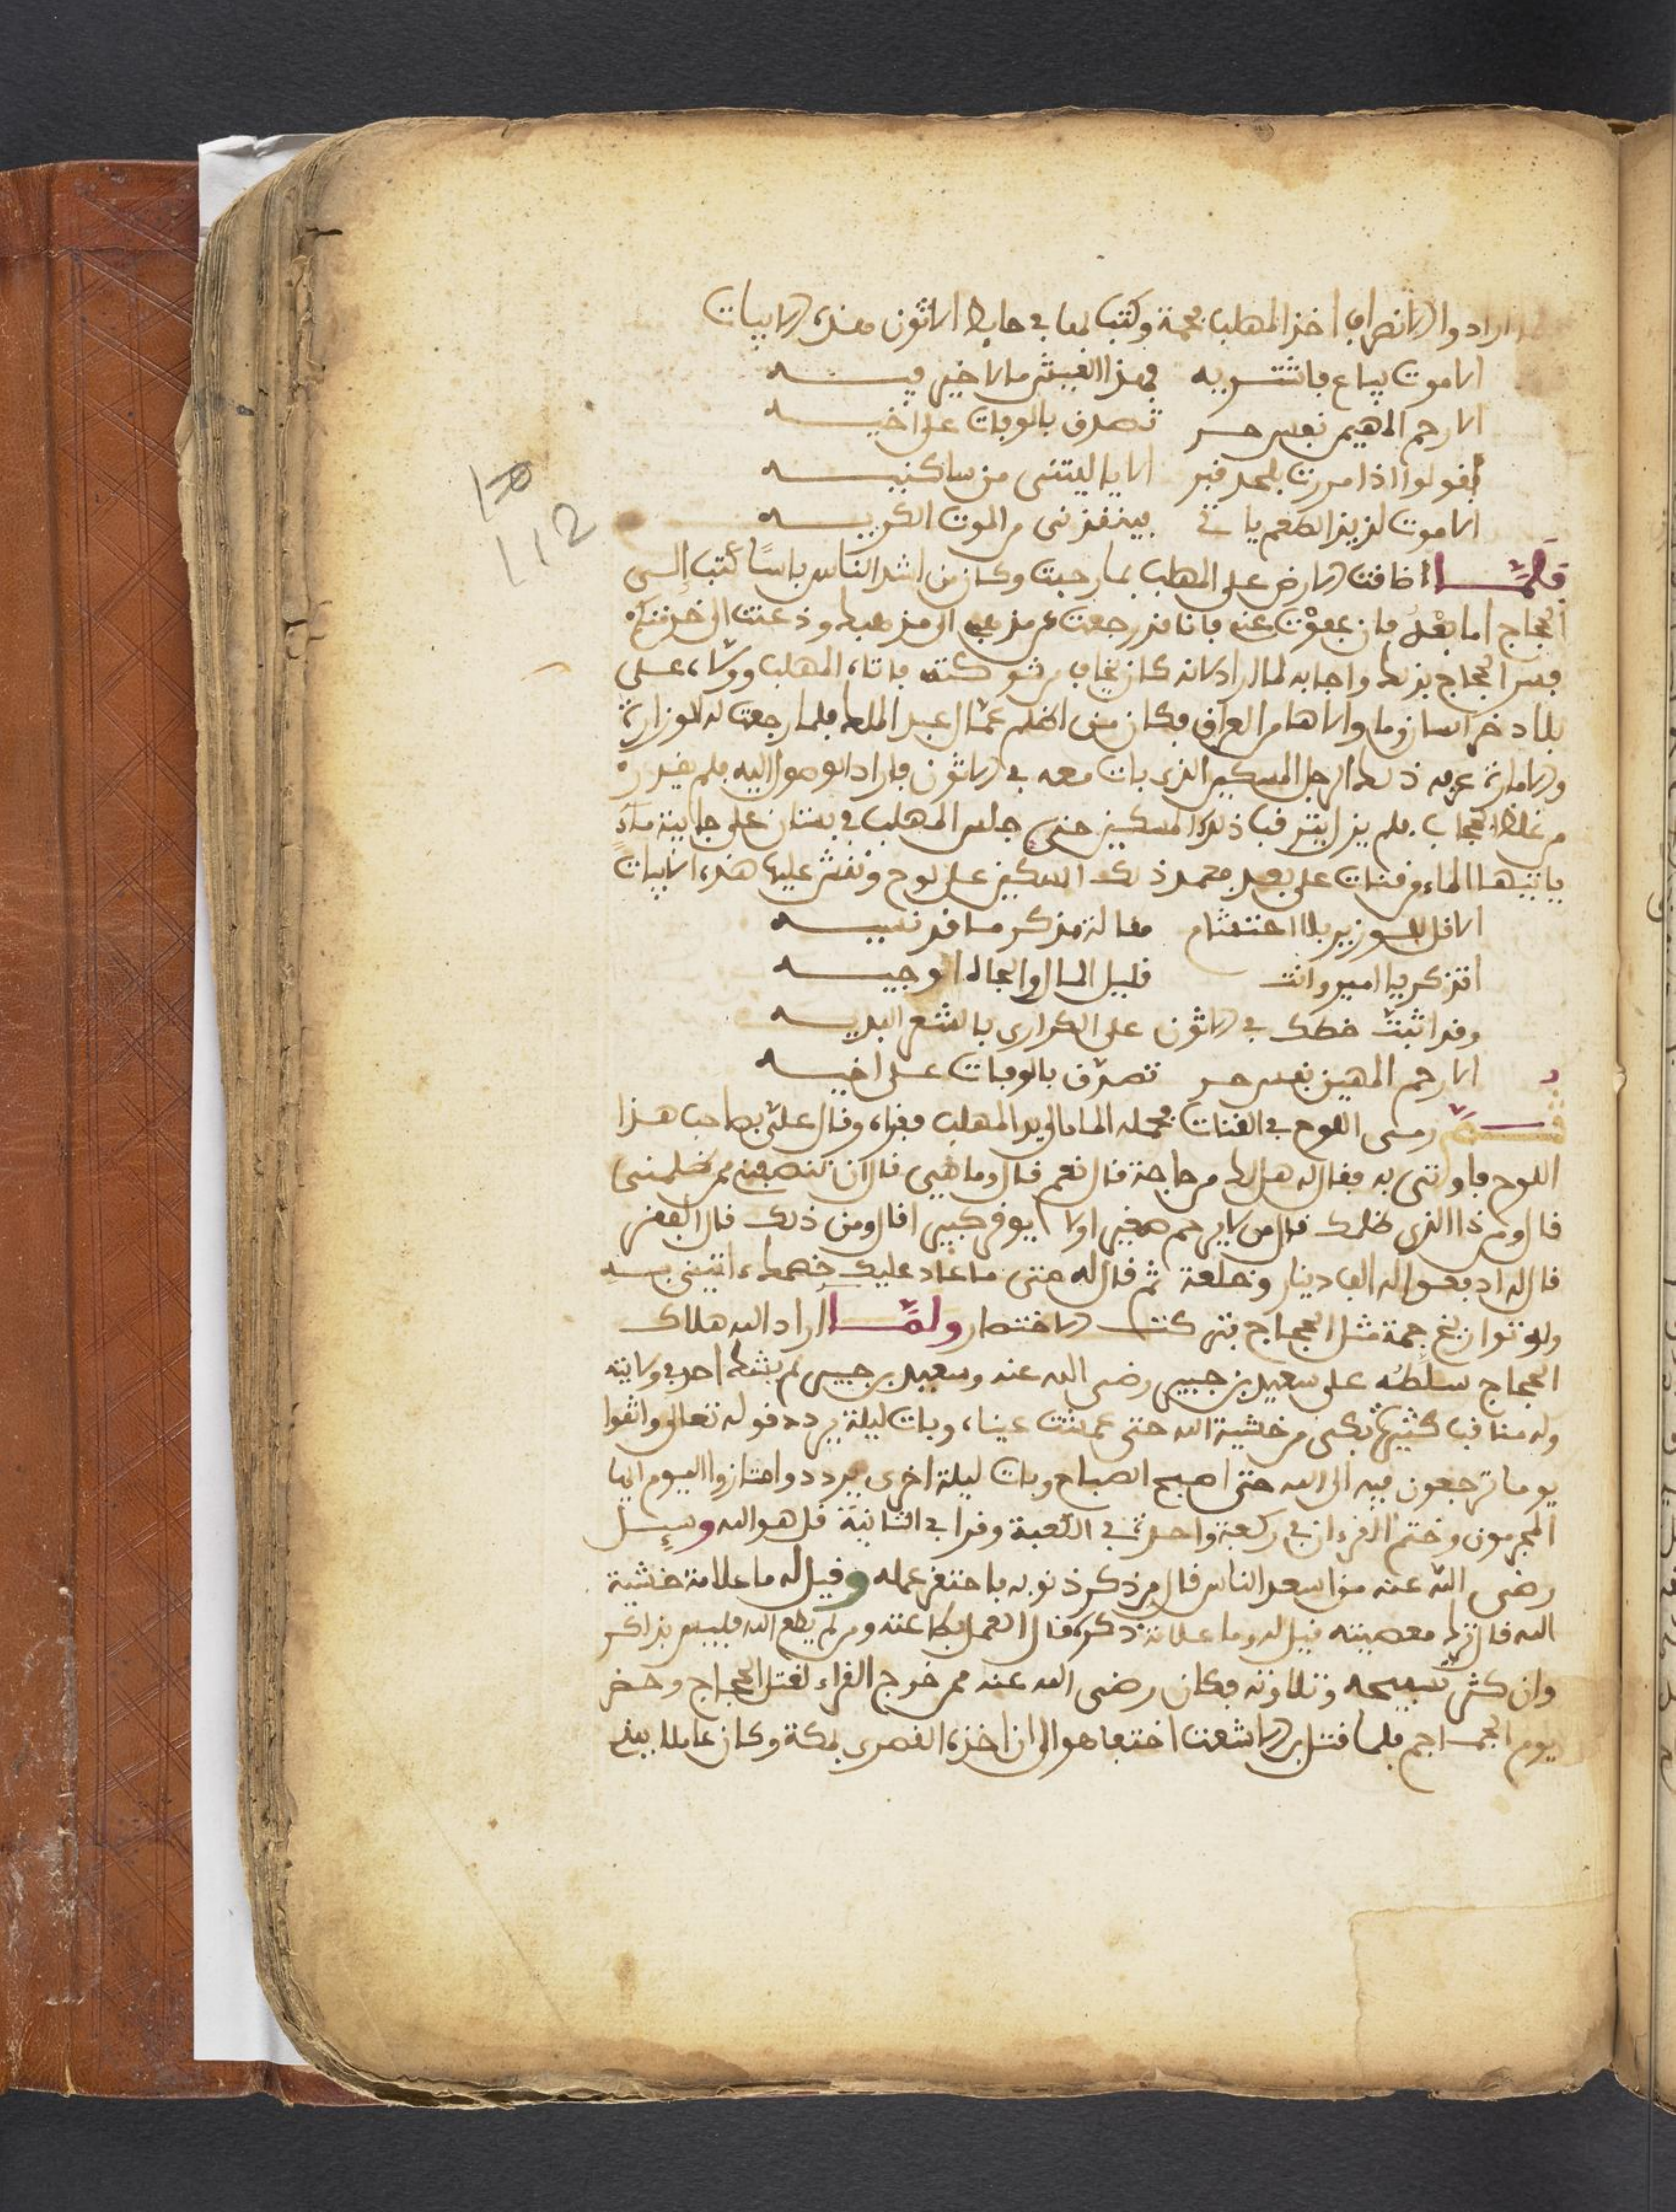 ارادوا الانصراف اخذ المهلب فحمة وكتب بها في حايط الاتون هذه الابيات
الا موت يباع فاشتريه فهذا العيش ما لا خير فيه
الا رحم المهيمن نفس حر تصدق بالوفات على اخيه
يقولوا اذا مررت بلحد قبر الا يا ليتني من ساكنيه
الا موت لذيذ الطعم ياتي فينقذني من الموت الكريه
فلما ضاقت الارض على المهلب بما رحبت وكان من اشد الناس باسا كتب الى
الحجاج اما بعد فان عفوت عني فانا قد رجعت عن مذهبي الى مذهبك وذعنت الى خدمتكم
فسر الحجاج بذلك واجابه لما اراد لانه كان يخاف من شوكته فاتاه المهلب وولاه على
بلاد خراسان وما والاها من العراق فكان من اعظم عمال عبد الملك فلما رجعت له الوزارة
والامارة عرف ذلك الرجل المسكين الذي بات معه في الاتون فاراد الوصول اليه فلم يقدر
من غلظ الحجاب فلم يزل يترقب ذلك المسكين حتى جلس المهلب في بستان على جابية ماء
ياتيها الماء من قنات على بعد فعمد ذلك المسكين على لوح ونقش عليه هذه الابيات
الا قل للوزير بلا احتشام مقالة مذكر ما قد نسيه
اتذكر يا امير وانت قليل المال والجاه الوجيه
وقد اثبت خطك في الاتون على الكراري بالشعر البديه
الا رحم المهيمن نفس حر تصدق بالوفات على اخيه
ثم رمى اللوح في القنات فحمله الماء الى يد المهلب فقراه وقال علي بصاحب هذا
اللوح فاوتي به فقال له هل لك من حاجة قال نعم قال وما هي قال ان تنصفني ممن ظلمني
قال ومن ذا الذي ظلمك قال من لا يرحم صغيرا ولا يوقر كبيرا قال ومن ذلك قال الفقر
قال له ادفعوا له الف دينار وخلعة ثم قال له متى ما عاد عليك خصمك ائتيني به
وله تواريخ جمة مثل الحجاج فتركت الاختصار ولما اراد الله هلاك
الحجاج سلطه على سعيد بن جبير رضي الله عنه وسعيد بن جبير لم يشك احد في ولايته
وله مناقب كثيرة بكى من خشية الله حتى عمشت عيناه وبات ليلة يردد قوله تعالى واتقوا
يوما ترجعون فيه الى الله حتى اصبح الصباح وبات ليلة اخرى يردد وامتازوا اليوم ايها
المجرمون وختم القرءان في ركعة واحدة في الكعبة وقرا في الثانية قل هو الله وسيل
رضي الله عنه من اسعد الناس قال من ذكر ذنوبه فاحتقر عمله وقيل له ما علامة خشية
الله قال ترك معصيته قيل له وما علامة ذكره قال العمل بطاعته ومن لم يطع الله فليس بذاكر
وان كثر تسبيحه وتلاوته فكان رضي الله عنه ممن خرج القراء لقتل الحجاج وحضر
يوم الجماجم فلما قتل بن الاشعث اختفا هو الى ان اخذه القصري بمكة وكان عاملا